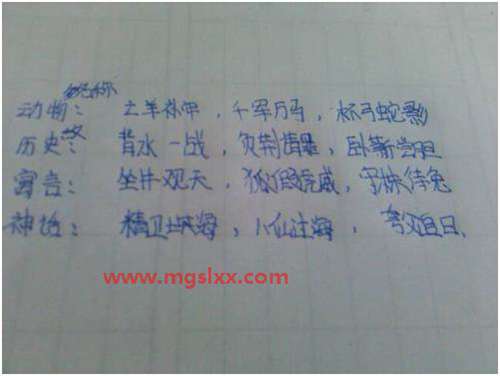 动物： 亡羊补牢，千军万马，杯弓蛇影
历史： 背水一战，负荆请罪，卧薪尝胆
寓言： 坐井观天，狐假虎威，守株待兔
神话： 精卫填海，八仙过海，夸父追日、
www.mgslxx.com